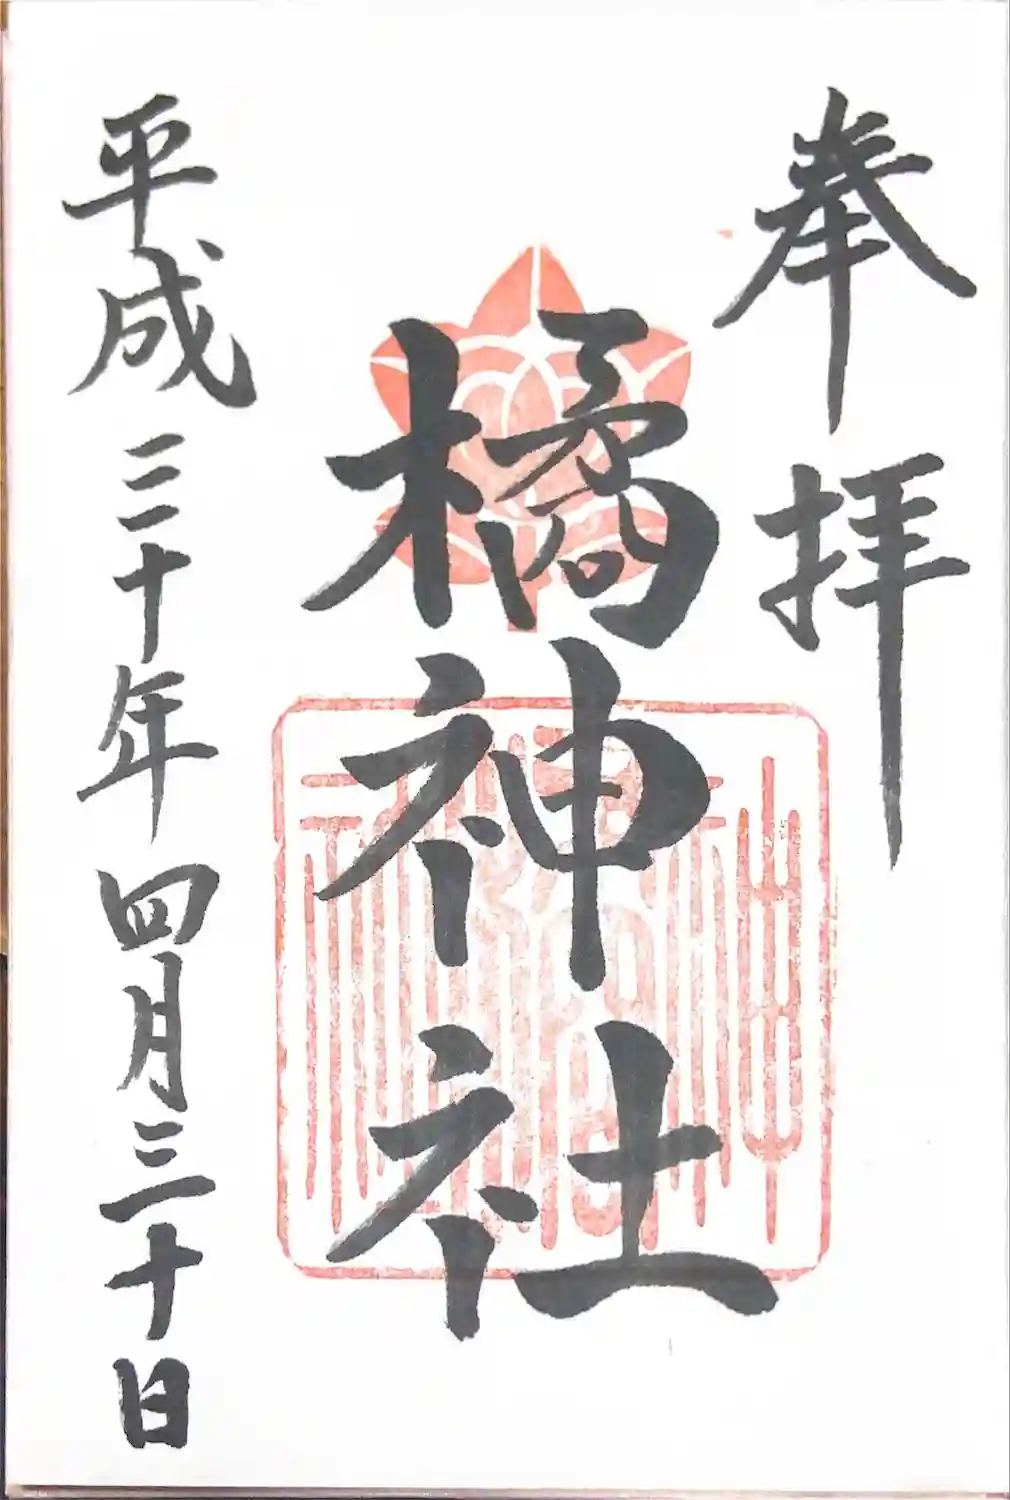 奉拝
橘神社
平成三十年四月三十日